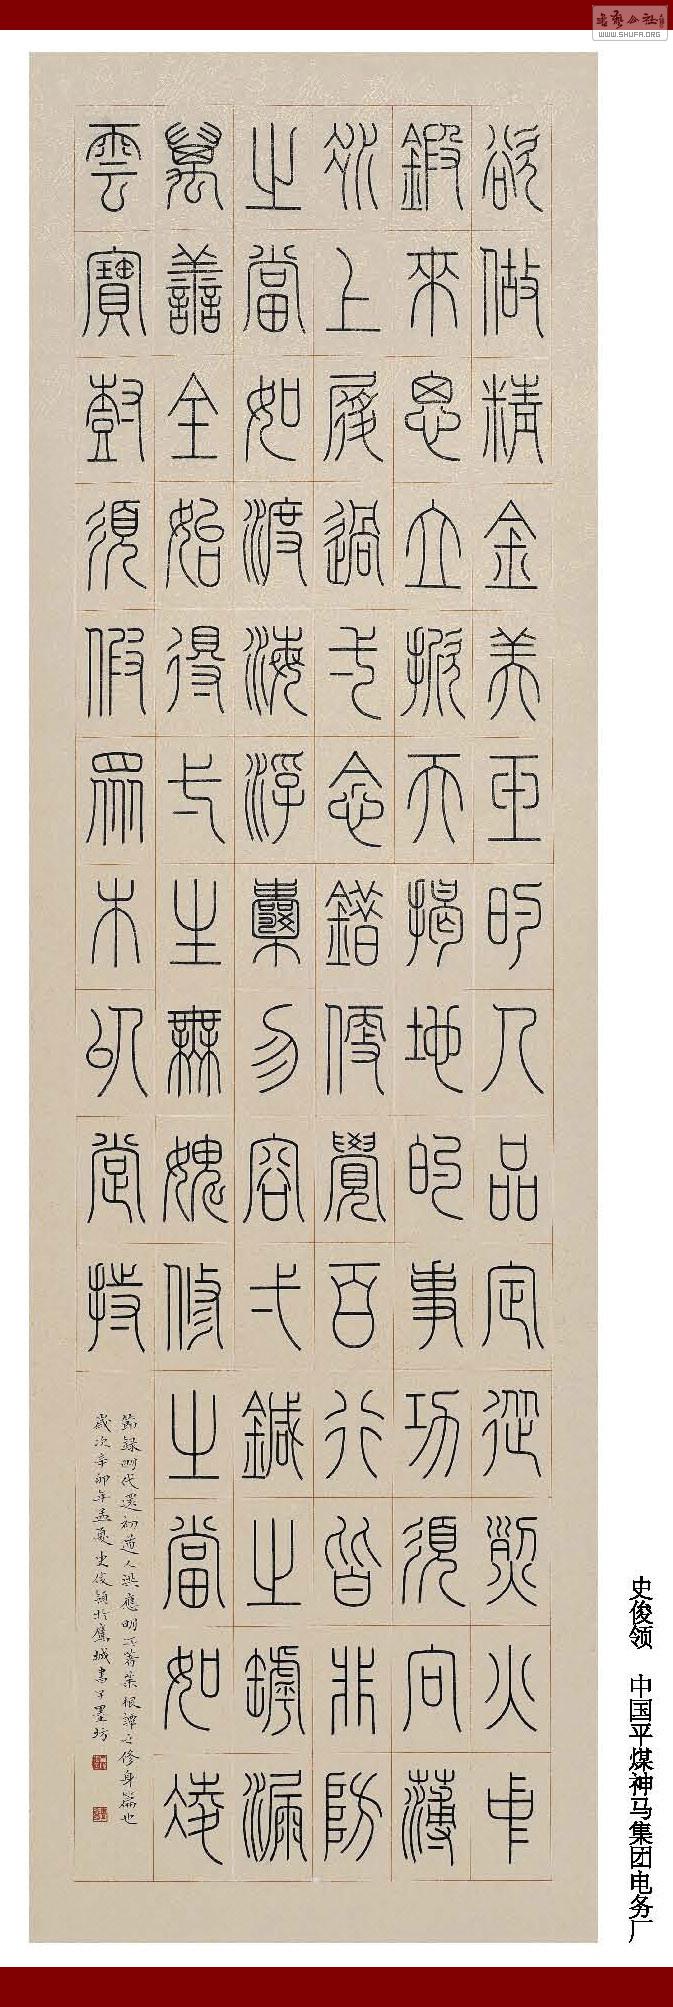 書藝公社
WWW.SHUFA.ORG
欲做精金美玉旳人品定從烈火中
鍛來思立掀天揭地的事功須向薄
冰上履過弌念錯便覺百行皆非防
之當如渡海浮囊勿容弌鍼之罅漏
萬善全始得弌生無媿修之當如凌
雲寶尌須假眾木以堂持
節錄明代還初道人洪應明所著菜根譚之修身篇也
歲次辛卯年孟夏史俊領於鷹城書子墨坊
史俊领 中国平煤神马集团电务厂